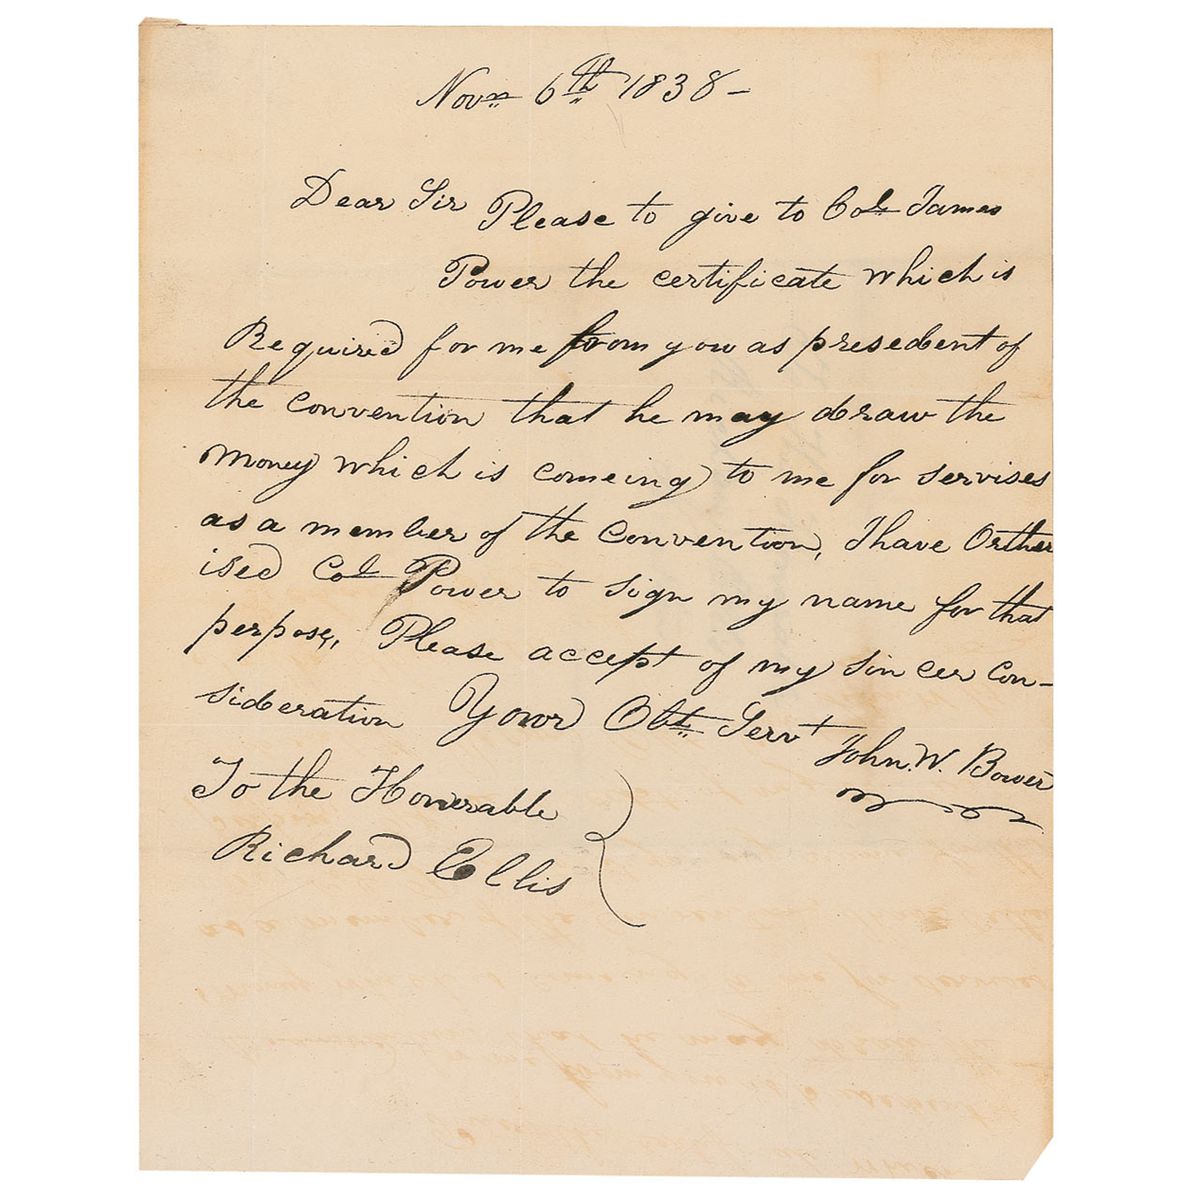 Novr 6th 1838 –
Dear Sir Please to give to Col James
Power the certificate which is
Required for me from you as presedent of
the convention that he may draw the
money which is comeing to me for servises
as a member of the convention, I have Orther
ised Col Power to sign my name for that
perpose, Please accept of my sin cer con-
sideration Your Obt Servt John. W. Bower
To the Honerable
Richard Ellis